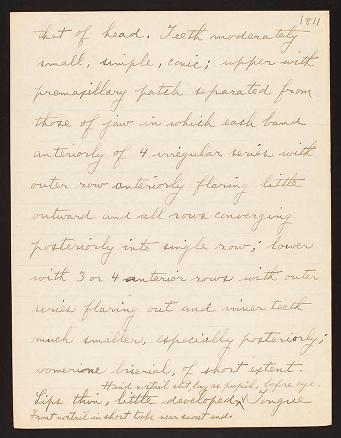 1811
that of head. Teeth moderately
small, simple, conic; upper with
premaxillary patch separated from
those of jaw in which each band
anteriorly of 4 irregular series with
outer row anteriorly flaring little
outward and all rows converging
posteriorly into single row; lower
with 3 or 4 anterior rows with outer
series flaring out and inner teeth
much smaller, especially posteriorly;
vomerine biserial, of short extent.
Hind nostril slit, long as pupil, before eye.
Lips thin, little developed. Tongue
Front nostril in short tube near snout end.